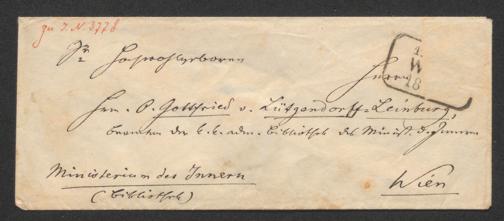 zu I. N. 3778
Sr. Hochwohlgeboren
Herrn
1.
W
18
Hrn. O. Gottfried v. Lützendorff=Leinburg,
Beamten der k. k. adm. Bibliothek des Minist. d. Innern
Ministerium des Innern
(Bibliothek)
Wien